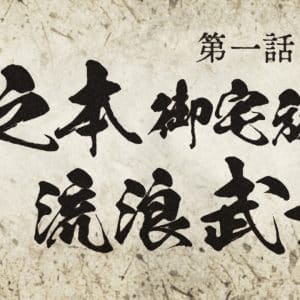 第一話
之本 御宅
流浪武